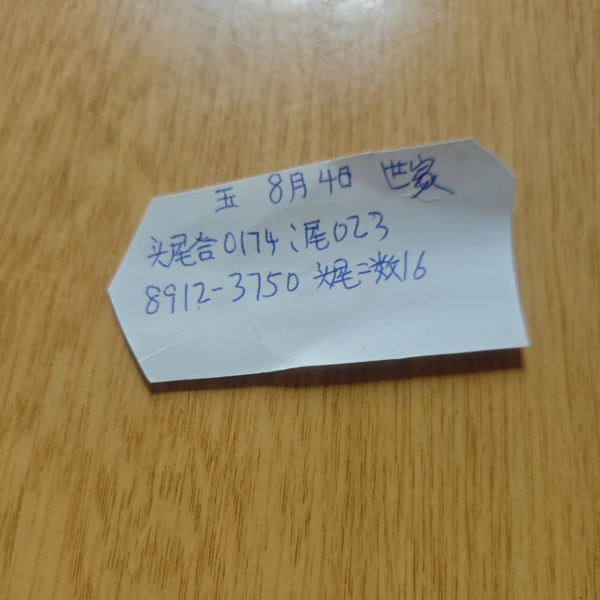 五 8月4日 世家
头尾合0174;尾023
8912-3750 头尾二数16